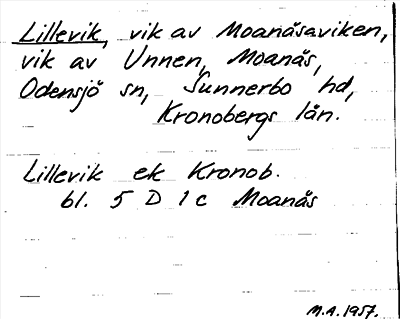 Lillevik, vik av Moanäsaviken,
vik av Unnen, Moanäs,
Odensjö sn, Sunnerbo hd,
Kronobergs län.
Lillevik ek Kronob.
bl. 5 D 1 c Moanäs
M.A. 1957.